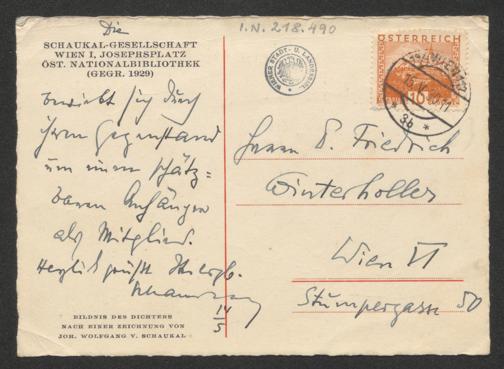 Die
SCHAUKAL-GESELLSCHAFT
WIEN I, JOSEPHSPLATZ
ÖST. NATIONALBIBLIOTHEK
(GEGR. 1929)
bewirbt sich durch
ihren Gegenstand
um einen schätz=
baren Anhänger
als Mitglied.
Herzlich grüßt Ihr ergb.
Schaukal
14
5
BILDNIS DES DICHTERS
NACH EINER ZEICHNUNG VON
JOH. WOLFGANG V. SCHAUKAL
I.N. 218.490
WIENER STADT- U. LANDESBIBL.
ÖSTERREICH
10
WIEN
3b
Herrn D. Friedrich
Winterholler
Wien VI
Stumpergasse 50